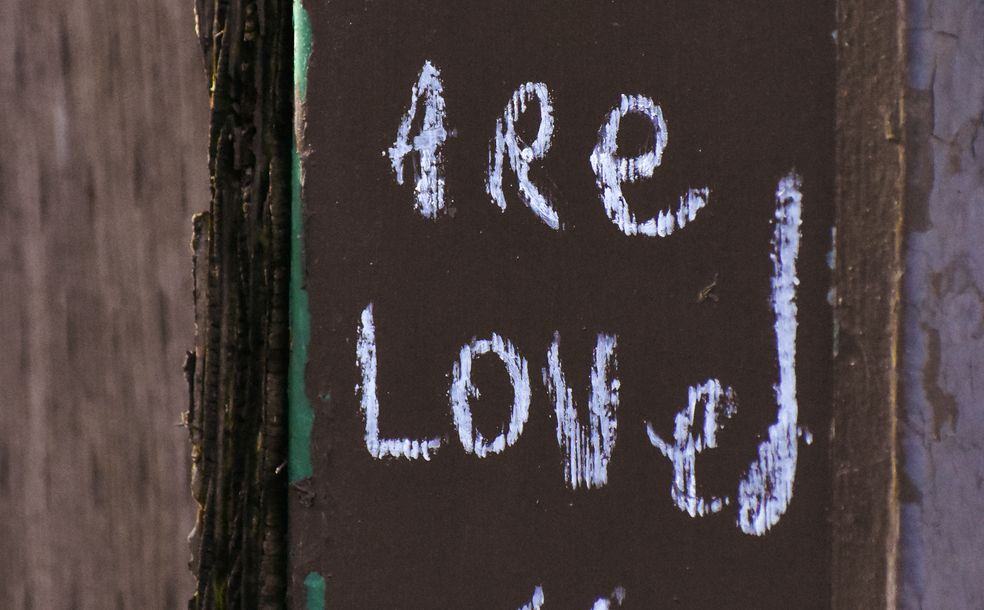 ARe
LOVed